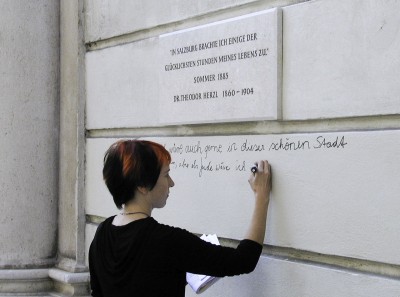 "IN SALZBURG BRACHTE ICH EINIGE DER
GLÜCKLICHSTEN STUNDEN MEINES LEBENS ZU."
SOMMER 1885
DR. THEODOR HERZL 1860 – 1904
auch gerne in dieser schönen Stadt
aber als Jude wäre ich